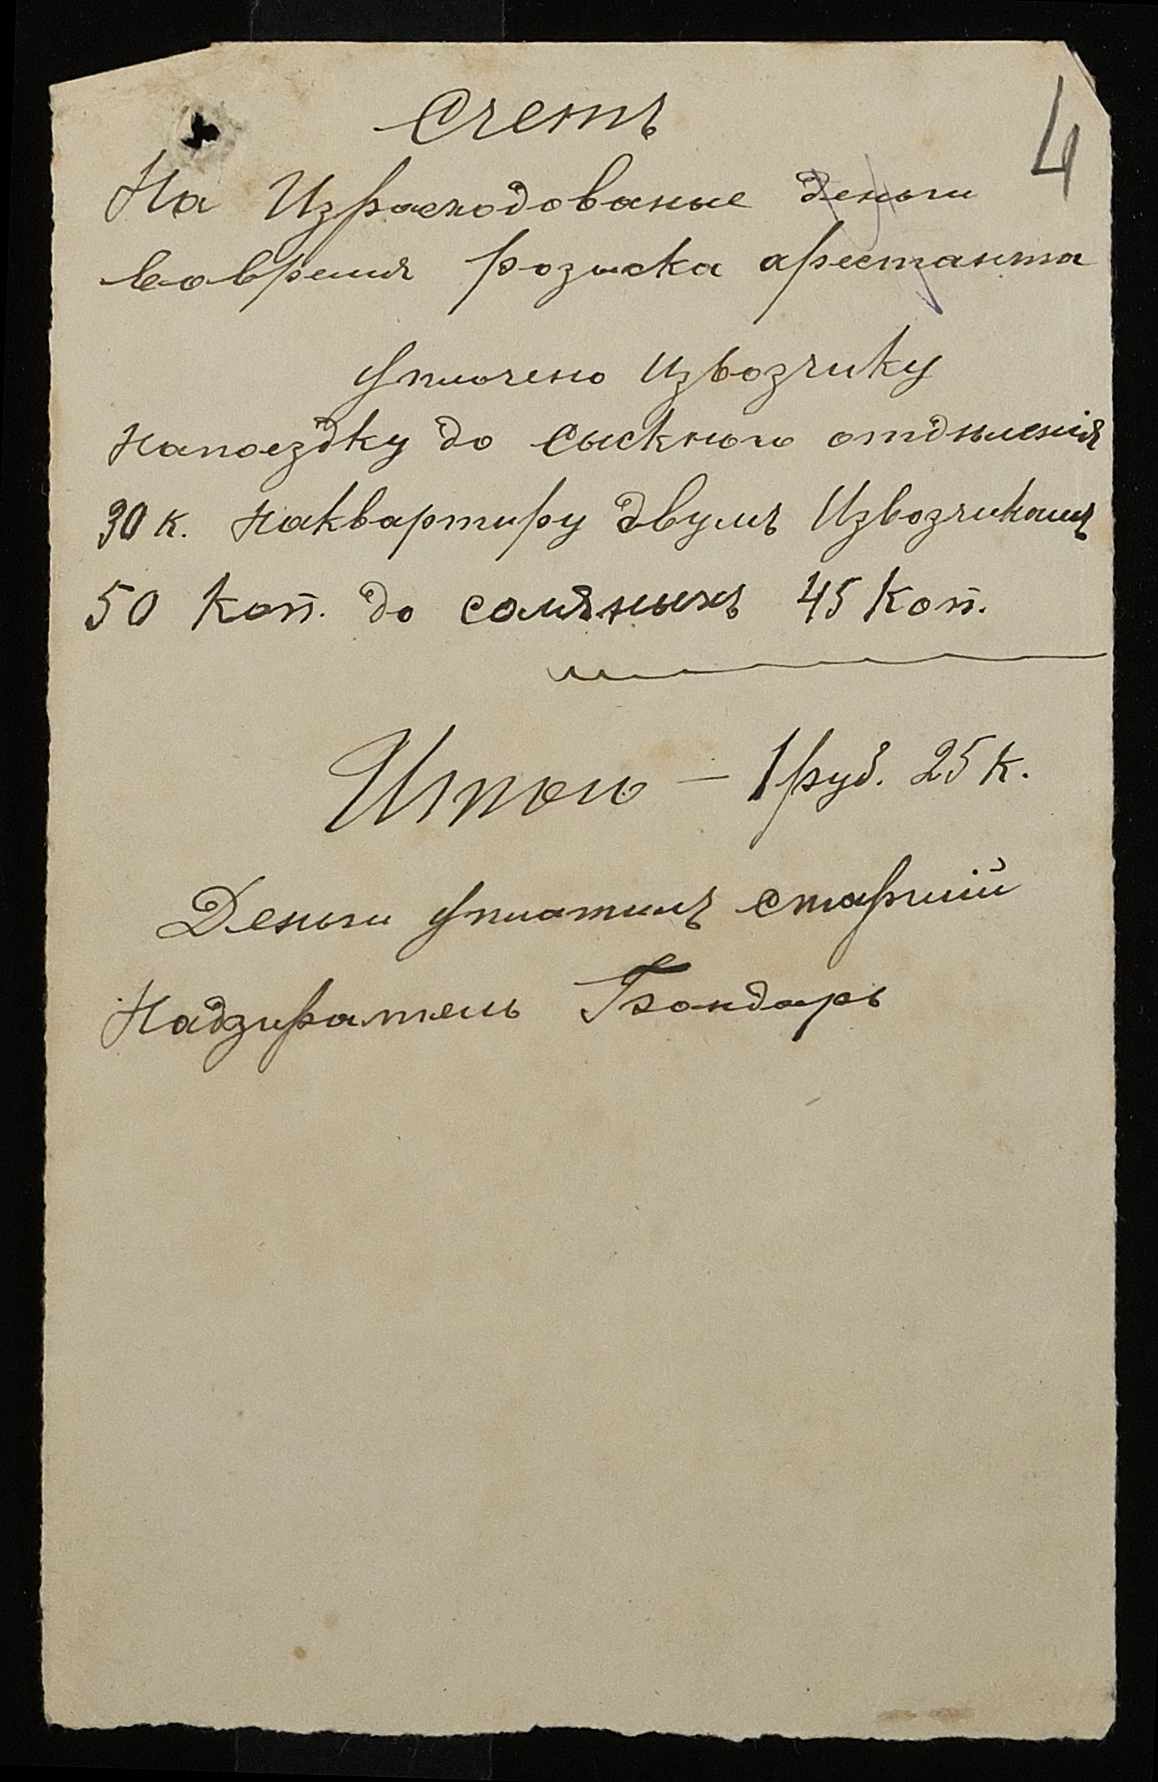 4
Счетъ
На Израсходованые деньги
вовремя розыска арестанта
Уплочено Извозчику
Напоездку до сыскного отдѣленія
30 к. Наквартиру двумъ Извозчикамъ
50 Коп. до соляныхъ 45 Коп.
Итого — 1 руб. 25 к.
Деньги уплатилъ старшій
Надзиратель Бондарь